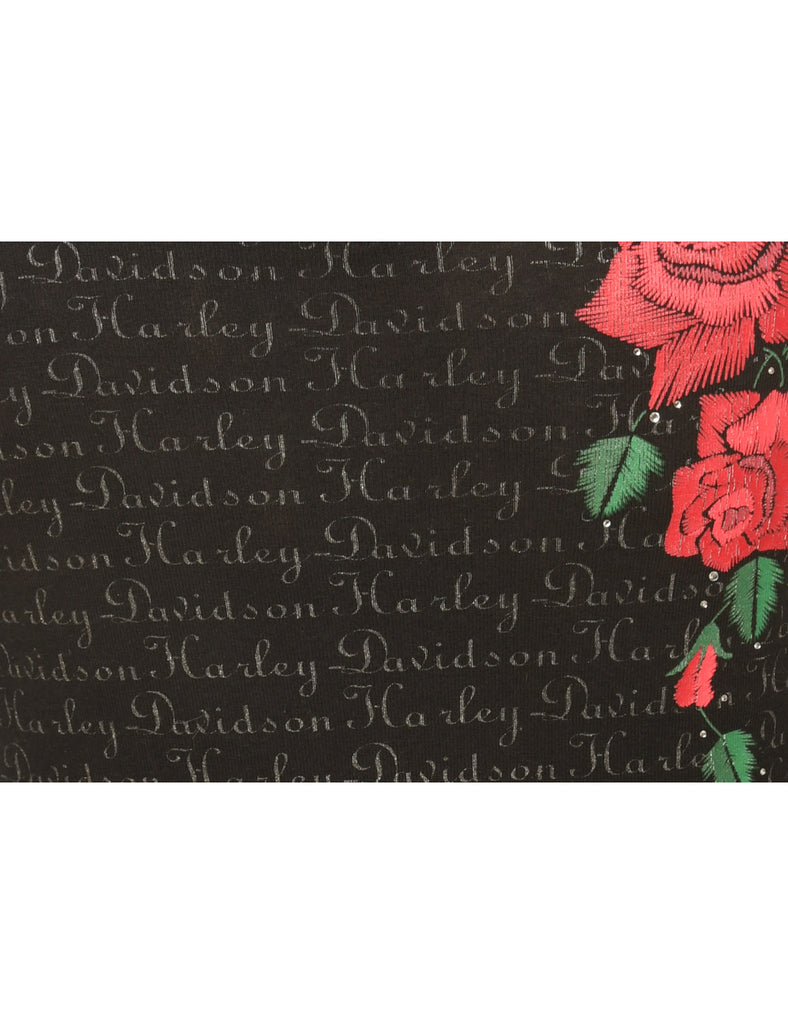 Davidson Harley-Davidson
on Harley-Davidson Ha
y-Davidson Harley-Davids
son Harley-Davidson
ley-Davidson Harley-D
vidson Harley-Davidson Ha
arley-Davidson Harley-Davidso
Davidson Harley-Davidson Harley
Harley-Davidson Harley-Davidson H
Davidson Harley-Davidson Harley